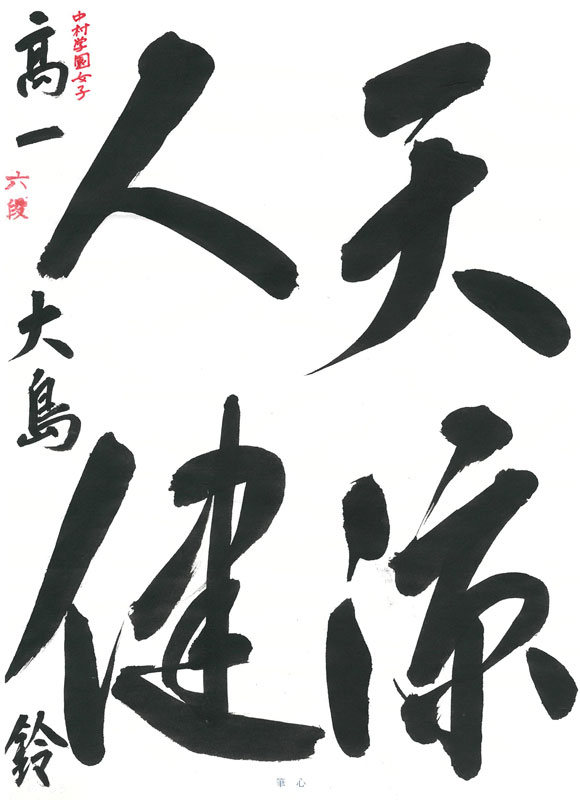 天涼
人健
中村学園女子
高一 大島 鈴
六段
筆心